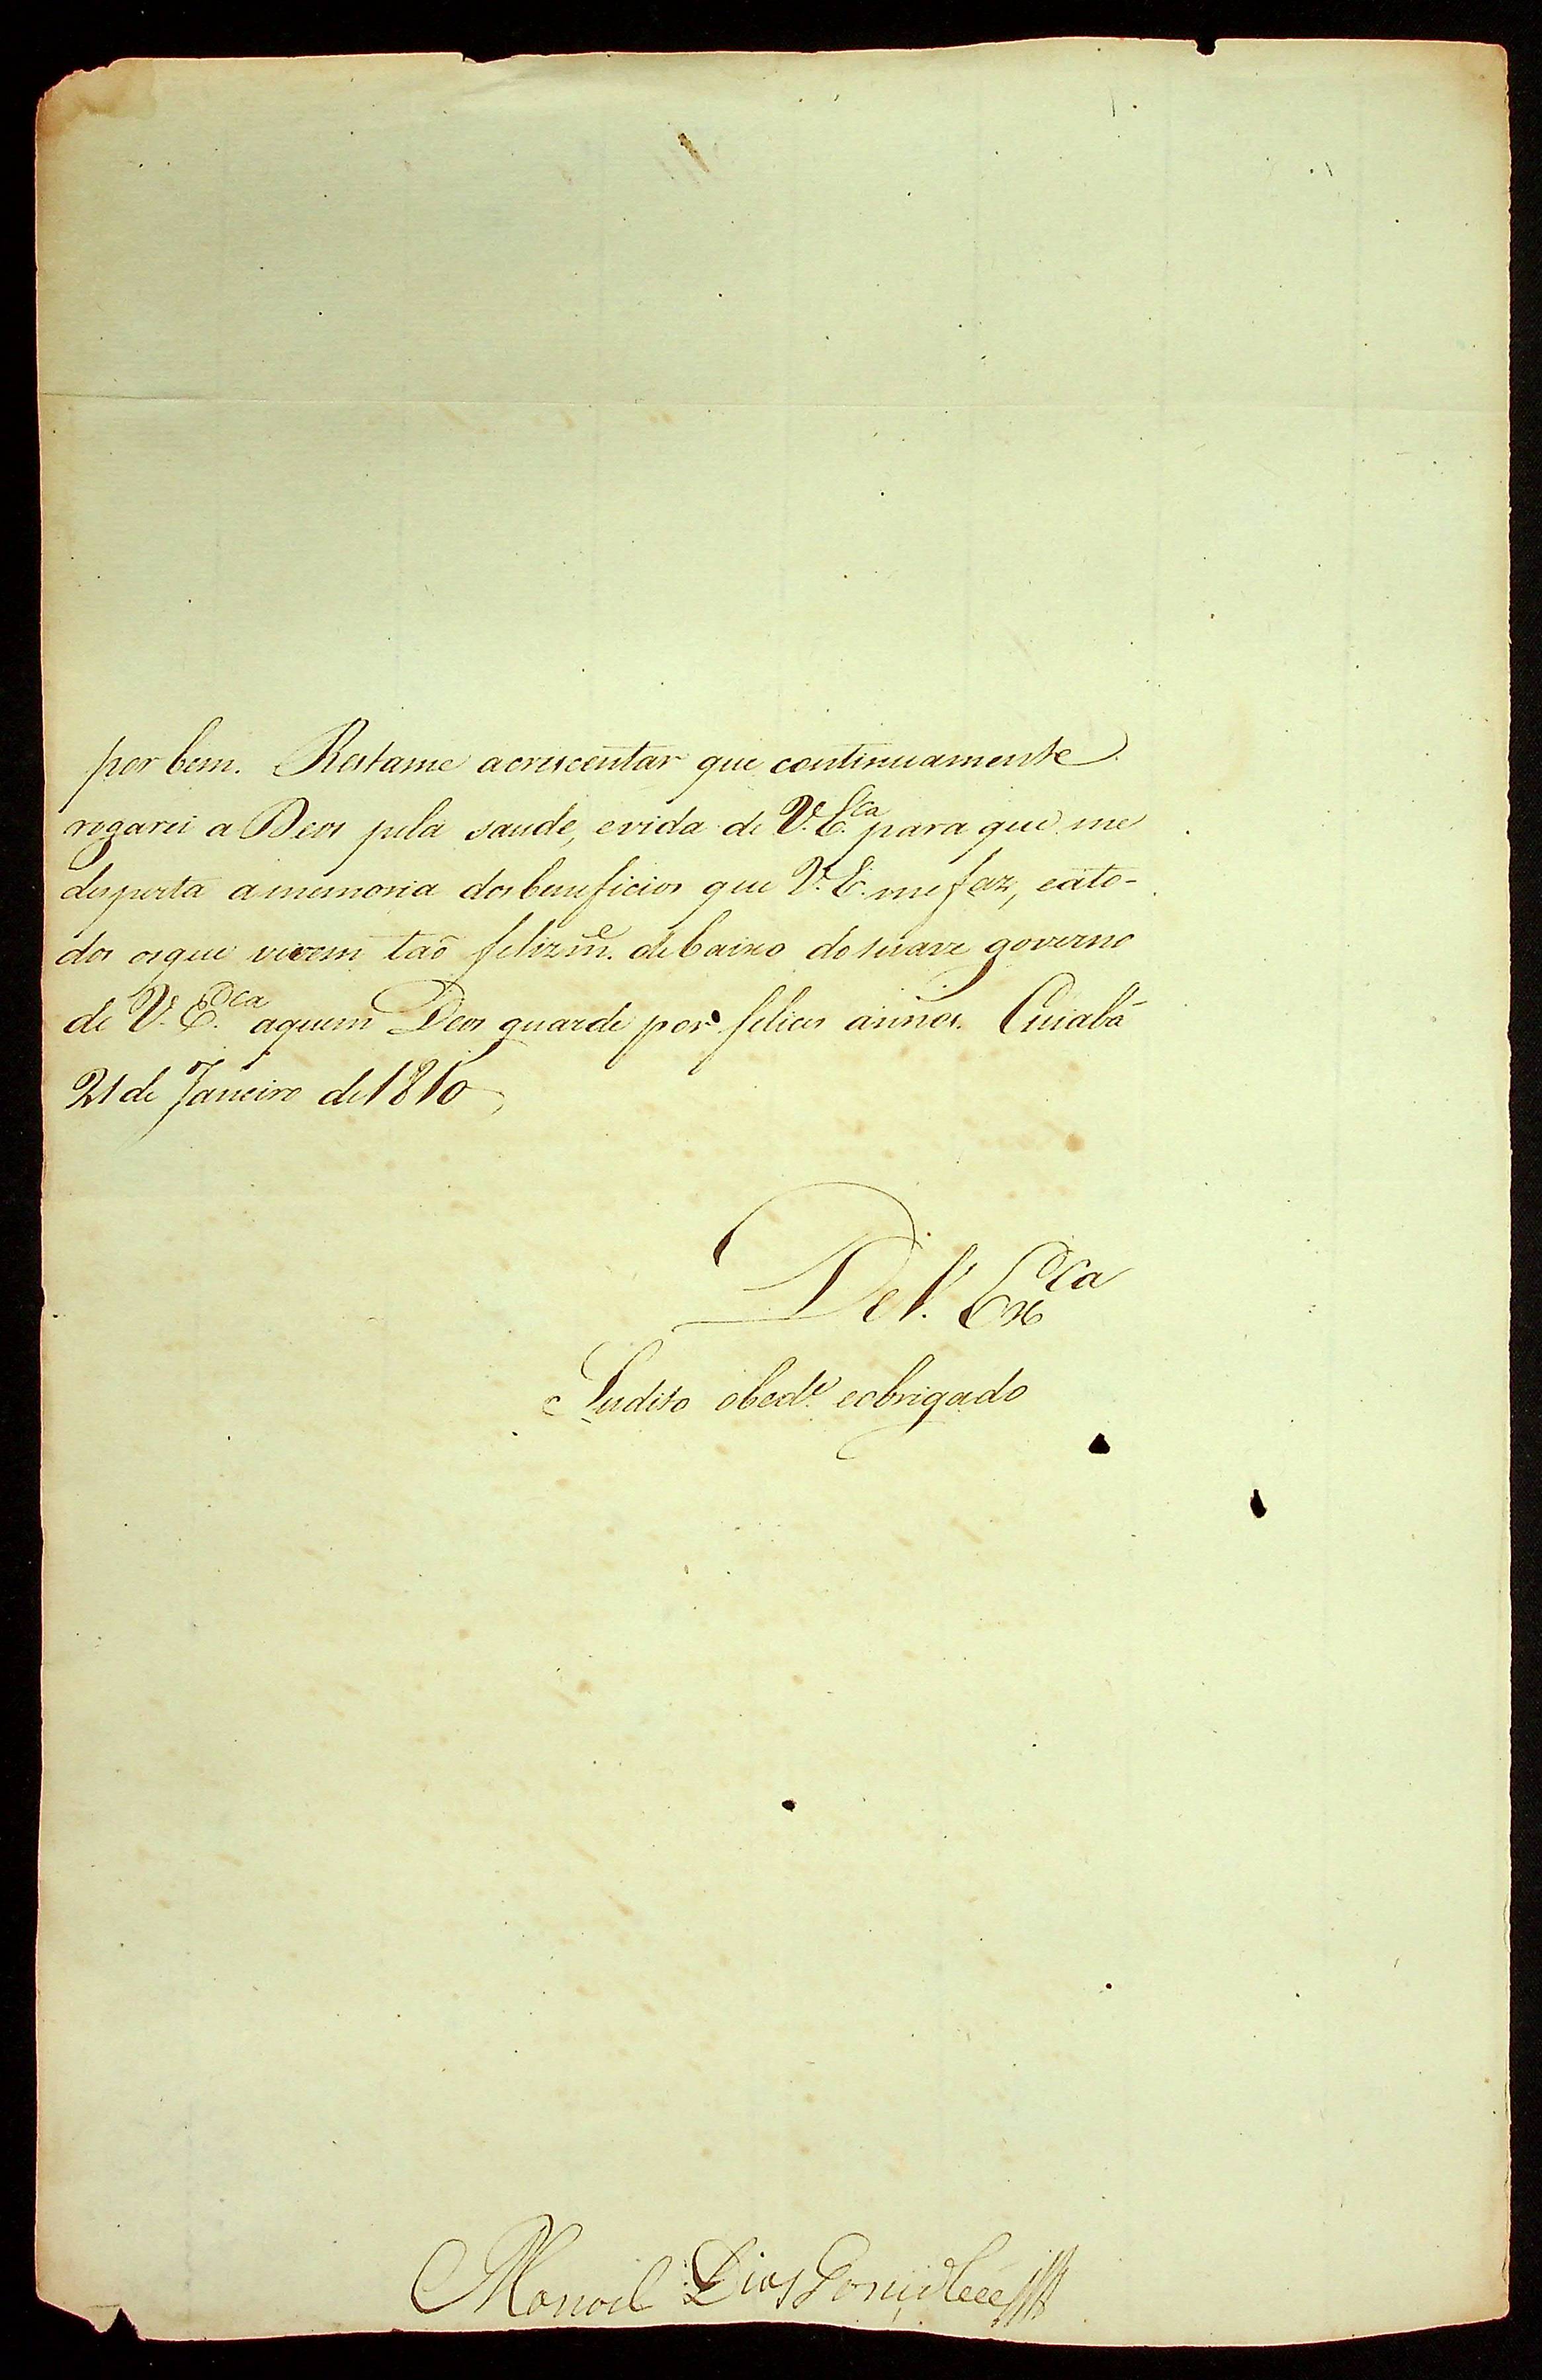 por bem. Restame acrescentar que continuamente
rogarei a Deos pela saude, evida de V. E.ca para que me
desperta amemoria dosbeneficios que V. E. mefaz, eato-
dos osque vivem taõ felizm.e debaixo do suave governo
de V. E.ca aquem Deos guarde por felices annos. Cuiabá
21 de Janeiro de 1810
De V. Ex.ca
Sudito obed.e eobrigado
Manoel Dias